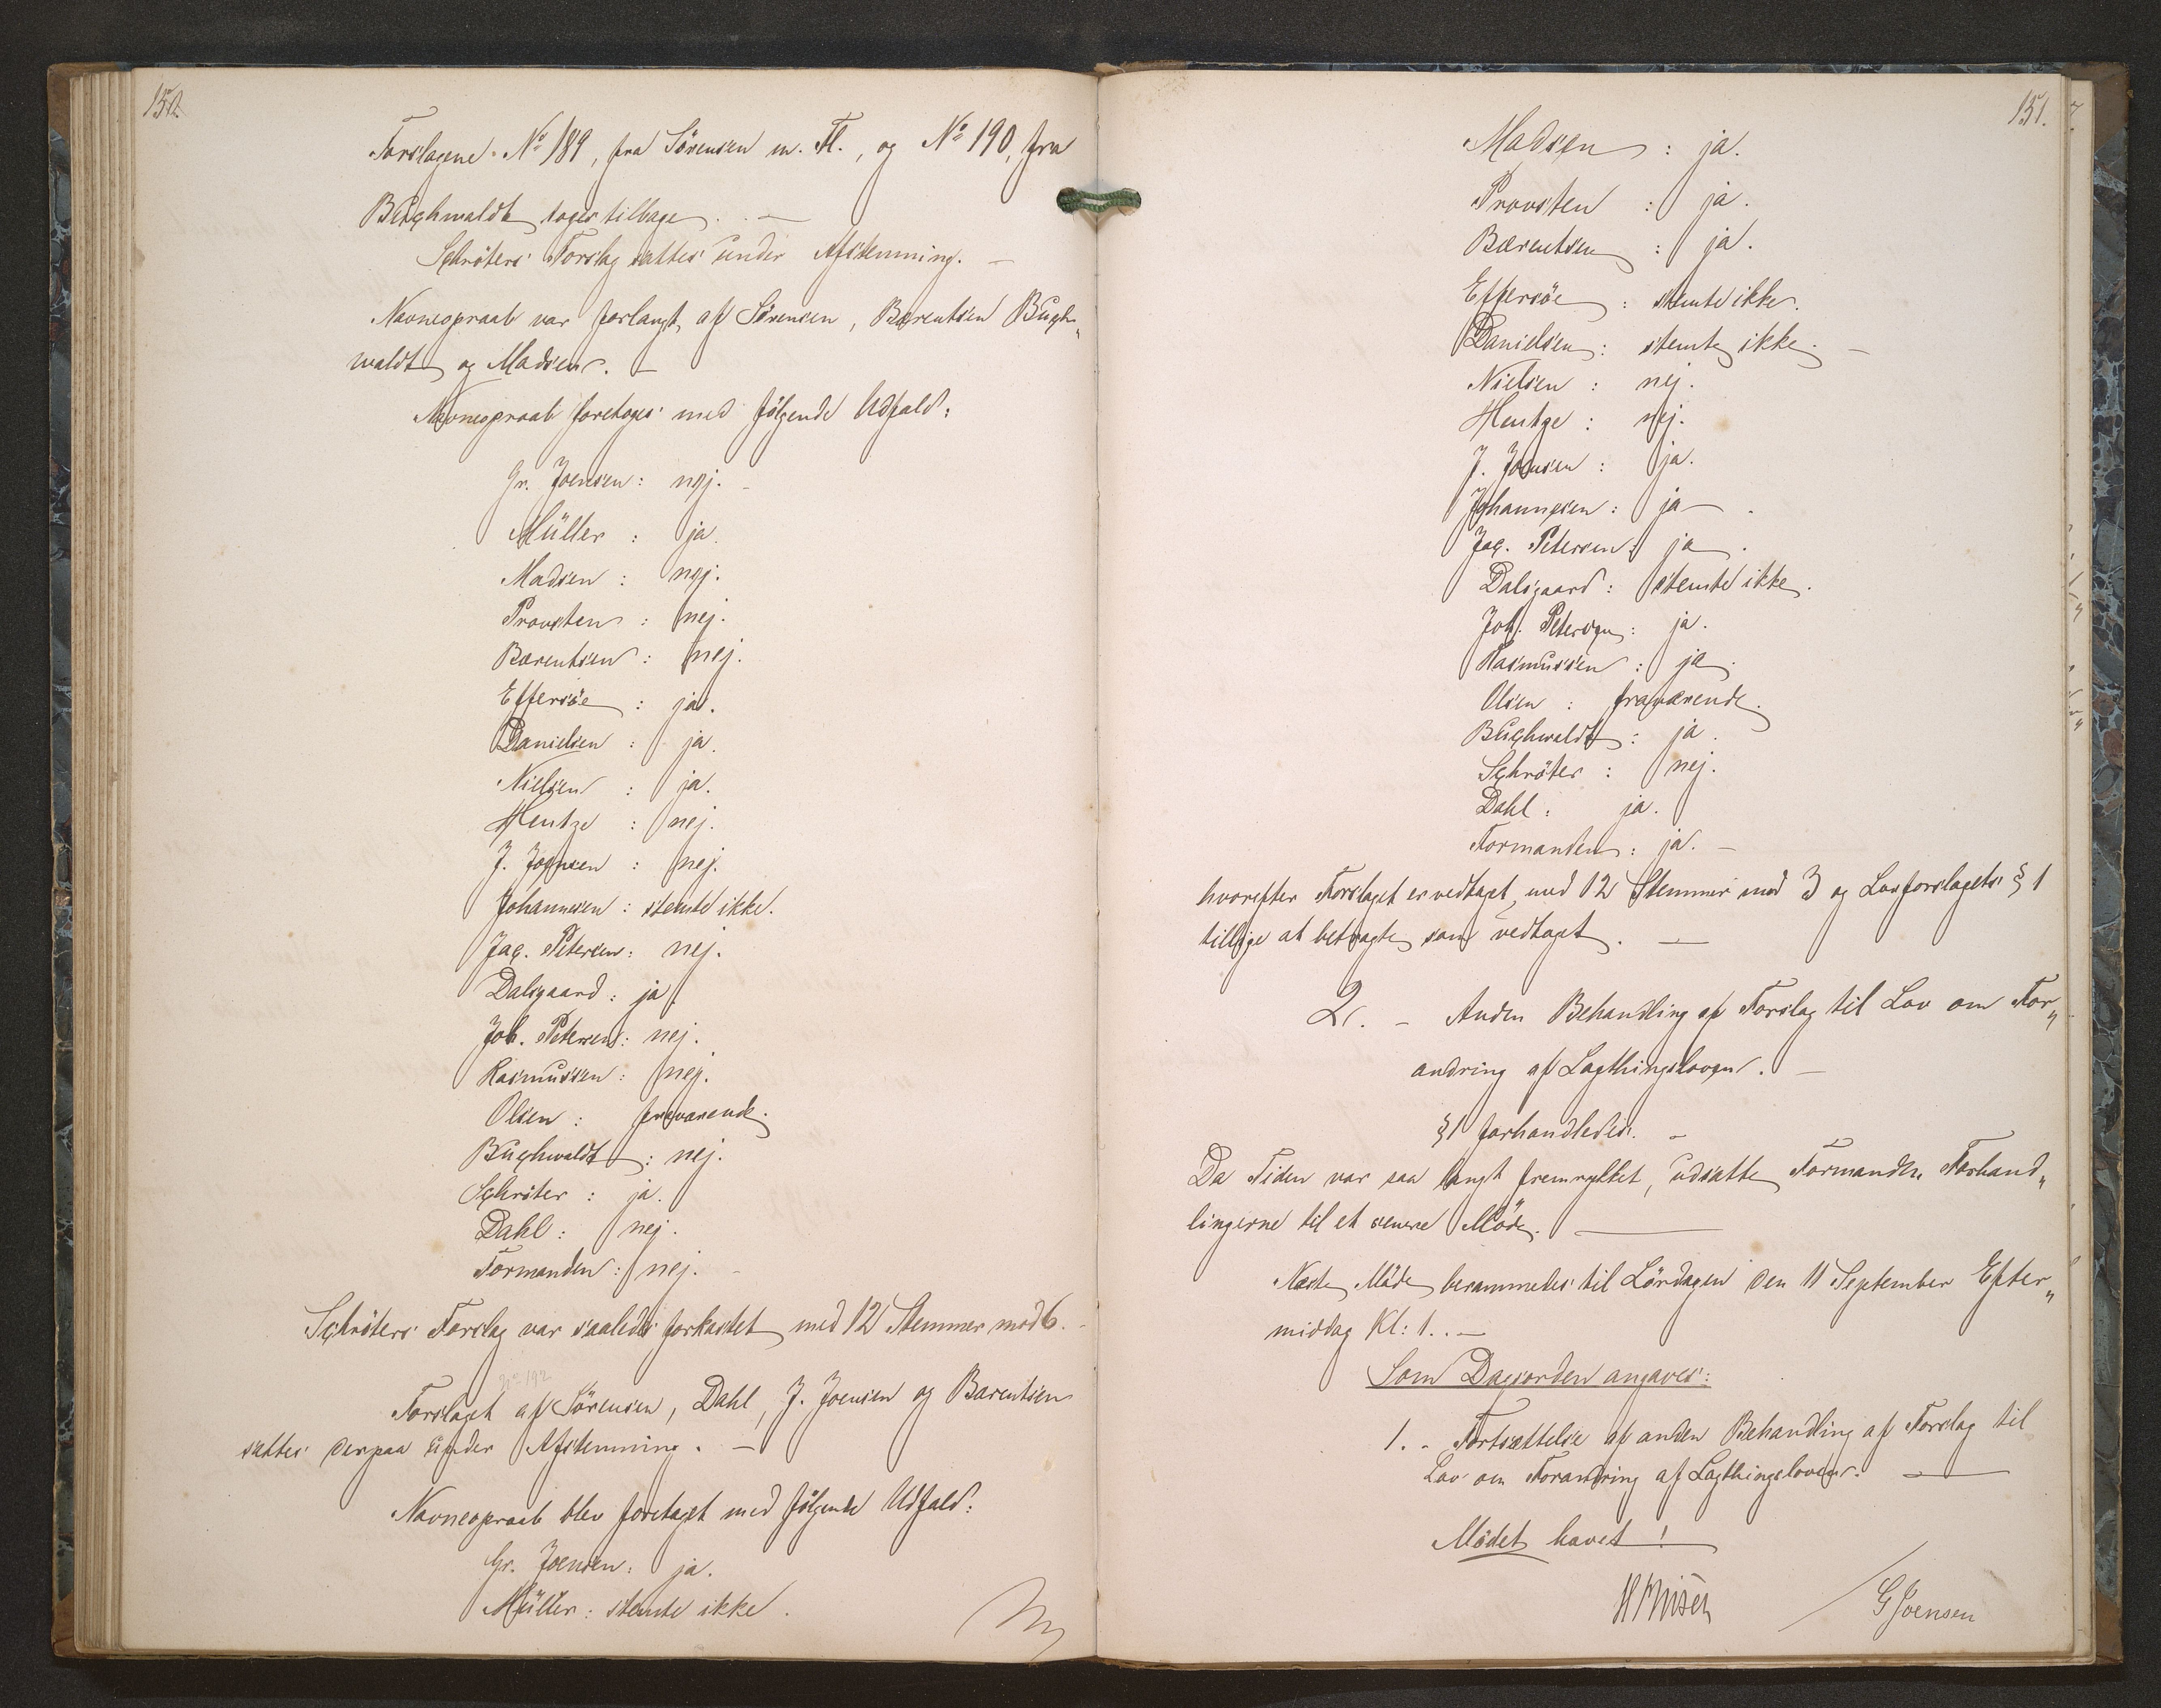 150.
Forslagene No 189, fra Sörensen m. Fl., og No 190, fra
Buchwaldt toges tilbage. —
Schröters Forslag sattes under Afstemning. —
Navneopraab var forlangt af Sörensen, Bærentsen Buch„
waldt og Madsen. —
Navneopraab foretoges med følgende Udfald:
Gr. Joensen: nej. –
Müller : ja.
Madsen : nej.
Provsten : nej.
Bærentsen : nej.
Effersöe : ja.
Danielsen : ja.
Nielsen : ja.
Hentze : nej.
J. Joensen : nej.
Johannesen : stemte ikke.
Jac. Petersen: nej.
Dalsgaard : ja.
Joh. Petersen: nej.
Rasmussen : nej.
Olsen : fraværende.
Buchwaldt : nej.
Schröter : ja.
Dahl : nej.
Formanden : nej. –
Schröters Forslag var saaledes forkastet med 12 Stemmer mod 6. –
No 192
Forslaget af Sörensen, Dahl, J. Joensen og Bærentsen
sattes derpaa under Afstemning. —
Navneopraab blev foretaget med følgende Udfald:
Gr. Joensen: ja.
Müller : stemte ikke.
151.
Madsen : ja.
Provsten : ja.
Bærentsen : ja.
Effersöe : stemte ikke.
Danielsen : stemte ikke. —
Nielsen : nej.
Hentze : nej.
J. Joensen : ja.
Johannesen : ja — .
Jac. Petersen: ja.
Dalsgaard : stemte ikke.
Joh. Petersen: ja.
Rasmussen : ja.
Olsen : fraværende.
Buchwaldt : ja.
Schröter : nej.
Dahl : ja.
Formanden : ja. —
hvorefter Forslaget er vedtaget med 12 Stemmer mod 3 og Lovforslagets § 1
tillige at betragte som vedtaget. —
2. – Anden Behandling af Forslag til Lov om For„
andring af Lagthingsloven. —
§ 1 forhandledes. –
Da Tiden var saa langt fremrykket, udsatte Formanden Forhand„
lingerne til et senere Möde. —
Næste Möde berammedes til Lördagen den 11 September Efter„
middag Kl: 1. . —
Som Dagsorden angaves:
1. – Fortsættelse af anden Behandling af Forslag til
Lov om Forandring af Lagthingsloven. —
Mödet hævet! —
G Joensen